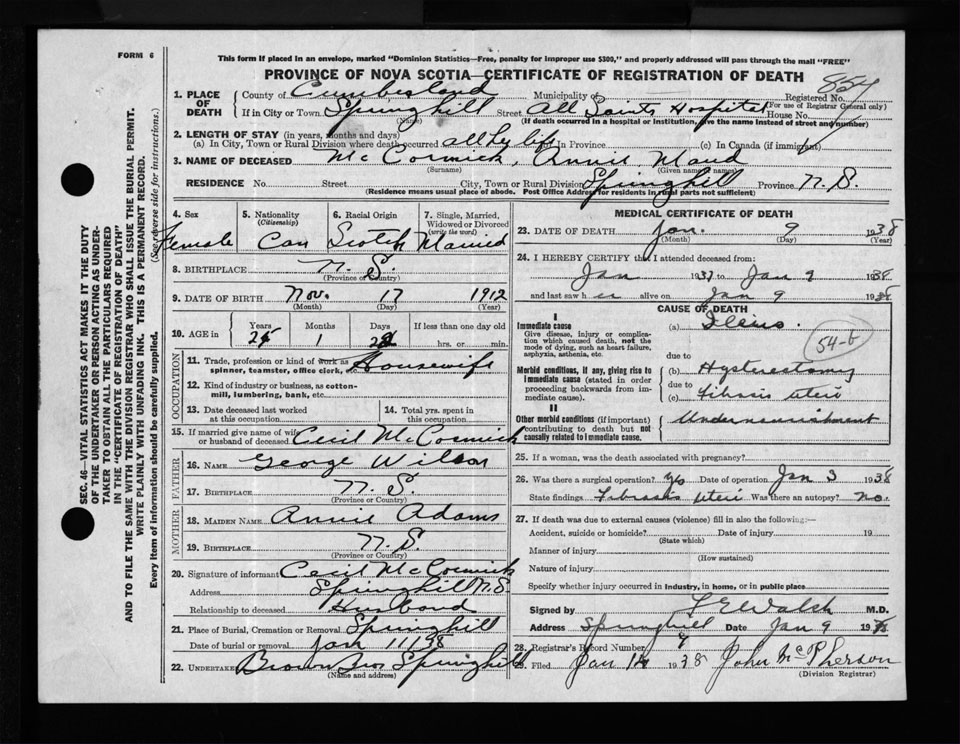 FORM 6
This form if placed in an envelope, marked "Dominion Statistics—Free, penalty for improper use $300," and properly addressed will pass through the mail "FREE"
PROVINCE OF NOVA SCOTIA—CERTIFICATE OF REGISTRATION OF DEATH
854
1. PLACE OF DEATH
County of Cumberland Municipality of Registered No.
(For use of Registrar General only)
If in City or Town Spring hill Street All Saints Hospital House No.
(Name) (If death occurred in a hospital or institution, give the name instead of street and number)
2. LENGTH OF STAY (in years, months and days)
(a) In City, Town or Rural Division where death occurred all her life (b) in Province (c) In Canada (if immigrant)
3. NAME OF DECEASED McCormick, Annie Maud
(Surname) (Given name or names)
RESIDENCE No. Street City, Town or Rural Division Springhill Province N. S.
(Residence means usual place of abode. Post Office Address for residents in rural parts not sufficient)
4. Sex
Female
5. Nationality
(Citizenship)
Can
6. Racial Origin
Scotch
7. Single, Married, Widowed or Divorced
(write the word)
Married
8. BIRTHPLACE N. S.
(Province or Country)
9. DATE OF BIRTH Nov. 17 1912
(Month) (Day) (Year)
10. AGE in
Years Months Days If less than one day old
1 hrs. or min.
OCCUPATION
11. Trade, profession or kind of work as spinner, teamster, office clerk, Housewife
12. Kind of industry or business, as cotton-mill, lumbering, bank, etc.
13. Date deceased last worked at this occupation
14. Total yrs. spent in this occupation
15. If married give name of wife or husband of deceased Cecil McCormick
FATHER
16. NAME George Wilson
17. BIRTHPLACE N. S.
(Province or Country)
MOTHER
18. MAIDEN NAME Annie Adams
19. BIRTHPLACE N. S.
(Province or Country)
20. Signature of informant Cecil McCormick
Address Springhill N.S.
Relationship to deceased Husband
21. Place of Burial, Cremation or Removal Springhill
Date of burial or removal Jan 11/38
22. UNDERTAKER Brown Bros Springhill
(Name and address)
MEDICAL CERTIFICATE OF DEATH
23. DATE OF DEATH Jan. 9 1938
(Month) (Day) (Year)
24. I HEREBY CERTIFY that I attended deceased from:
Jan 1937 to Jan 9 1938
and last saw her alive on Jan 9 1938
CAUSE OF DEATH
I
Immediate cause
Give disease, injury or complication which caused death, not the mode of dying, such as heart failure, asphyxia, asthenia, etc.
(a) Ileus.
54-b
due to
Morbid conditions, if any, giving rise to immediate cause (stated in order proceeding backwards from immediate cause).
(b) Hysterectomy
due to
(c) Fibrosis uteri
II
Other morbid conditions (if important) contributing to death but not causally related to immediate cause.
Undernourishment
25. If a woman, was the death associated with pregnancy?
26. Was there a surgical operation? yes Date of operation Jan 3 1938
State findings Fibrosis Uteri Was there an autopsy? no.
27. If death was due to external causes (violence) fill in also the following:—
Accident, suicide or homicide? Date of injury 19
(State which)
Manner of injury
(How sustained)
Nature of injury
Specify whether injury occurred in industry, in home, or in public place
Signed by Walsh M.D.
Address Springhill Date Jan 9 1938
28. Registrar's Record Number 9
29. Filed Jan 14 1938 John McPherson
(Division Registrar)
SEC. 46—VITAL STATISTICS ACT MAKES IT THE DUTY
OF THE UNDERTAKER OR PERSON ACTING AS UNDER-
TAKER TO OBTAIN ALL THE PARTICULARS REQUIRED
IN THE "CERTIFICATE OF REGISTRATION OF DEATH"
AND TO FILE THE SAME WITH THE DIVISION REGISTRAR WHO SHALL ISSUE THE BURIAL PERMIT.
WRITE PLAINLY WITH UNFADING INK. THIS IS A PERMANENT RECORD.
Every item of information should be carefully supplied. (See reverse side for instructions.)